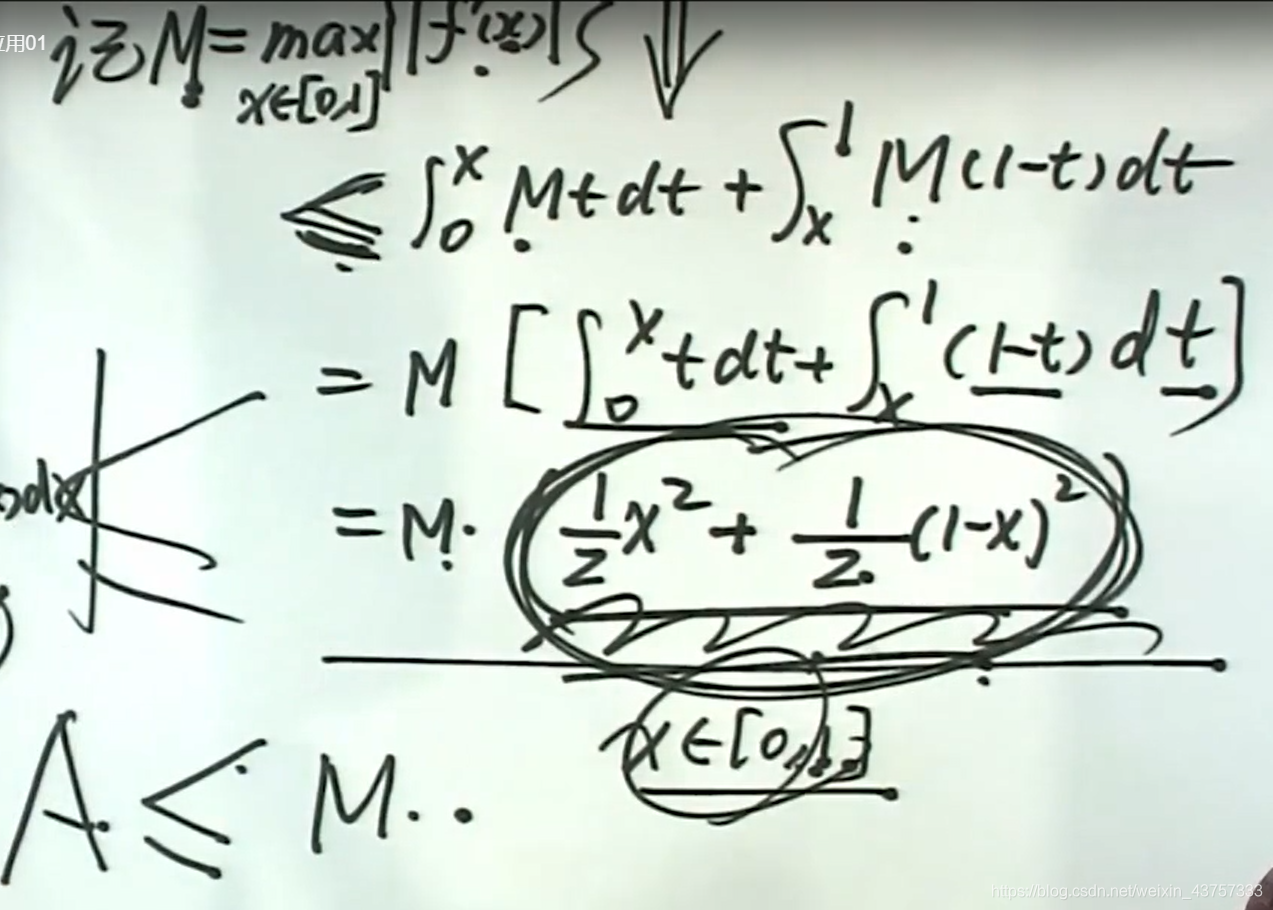 应用01
记M=max|f'(x)|
x∈[0,1]
≤∫₀ˣMtdt+∫ₓ¹M(1-t)dt
=M[∫₀ˣtdt+∫ₓ¹(1-t)dt]
dx
=M·(1/2x²+1/2(1-x)²)
x∈[0,1]
A≤M··
https://blog.csdn.net/weixin_43757333